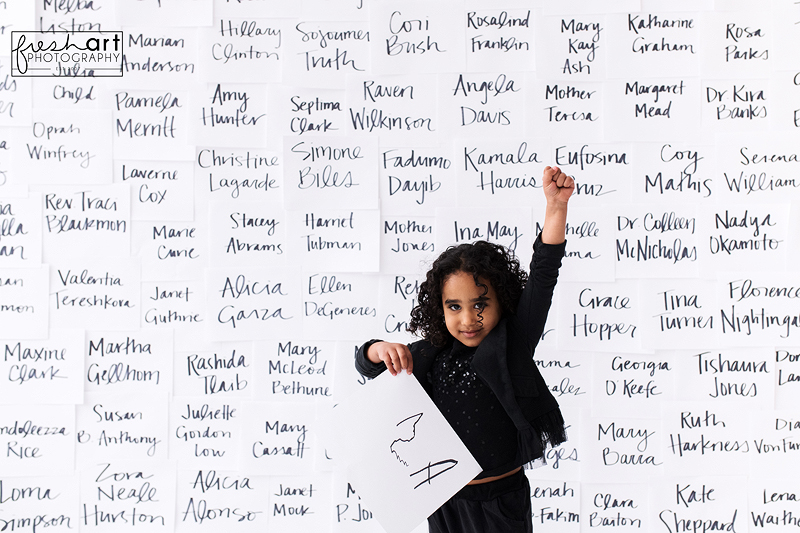 Melba
Liston
fresh ART
PHOTOGRAPHY
Julia
Child
Marian
Anderson
Hillary
Clinton
Sojourner
Truth
Cori
Bush
Rosalind
Franklin
Mary
Kay
Ash
Katharine
Graham
Rosa
Parks
Oprah
Winfrey
Pamela
Merritt
Amy
Hunter
Septima
Clark
Raven
Wilkinson
Angela
Davis
Mother
Teresa
Margaret
Mead
Dr Kira
Banks
Rev Traci
Blackmon
Laverne
Cox
Christine
Lagarde
Simone
Biles
Fadumo
Dayib
Kamala
Harris
Eufosina
Cruz
Coy
Mathis
Serena
William
Marie
Curie
Stacey
Abrams
Harriet
Tubman
Mother
Jones
Ina May
Dr Colleen
McNicholas
Nadya
Okamoto
Valentia
Tereshkova
Janet
Guthrie
Alicia
Garza
Ellen
DeGeneres
Grace
Hopper
Tina
Turner
Florence
Nightinga
Maxine
Clark
Martha
Gellhorn
Rashida
Tlaib
Mary
McLeod
Bethune
Georgia
O'Keefe
Tishaura
Jones
Rice
Susan
B Anthony
Juliette
Gordon
Low
Mary
Cassatt
Mary
Barra
Ruth
Harkness
Lorna
Simpson
Zora
Neale
Hurston
Alicia
Alonso
Janet
Mock
P. Jo
Clara
Barton
Kate
Sheppard
Lena
Waithe